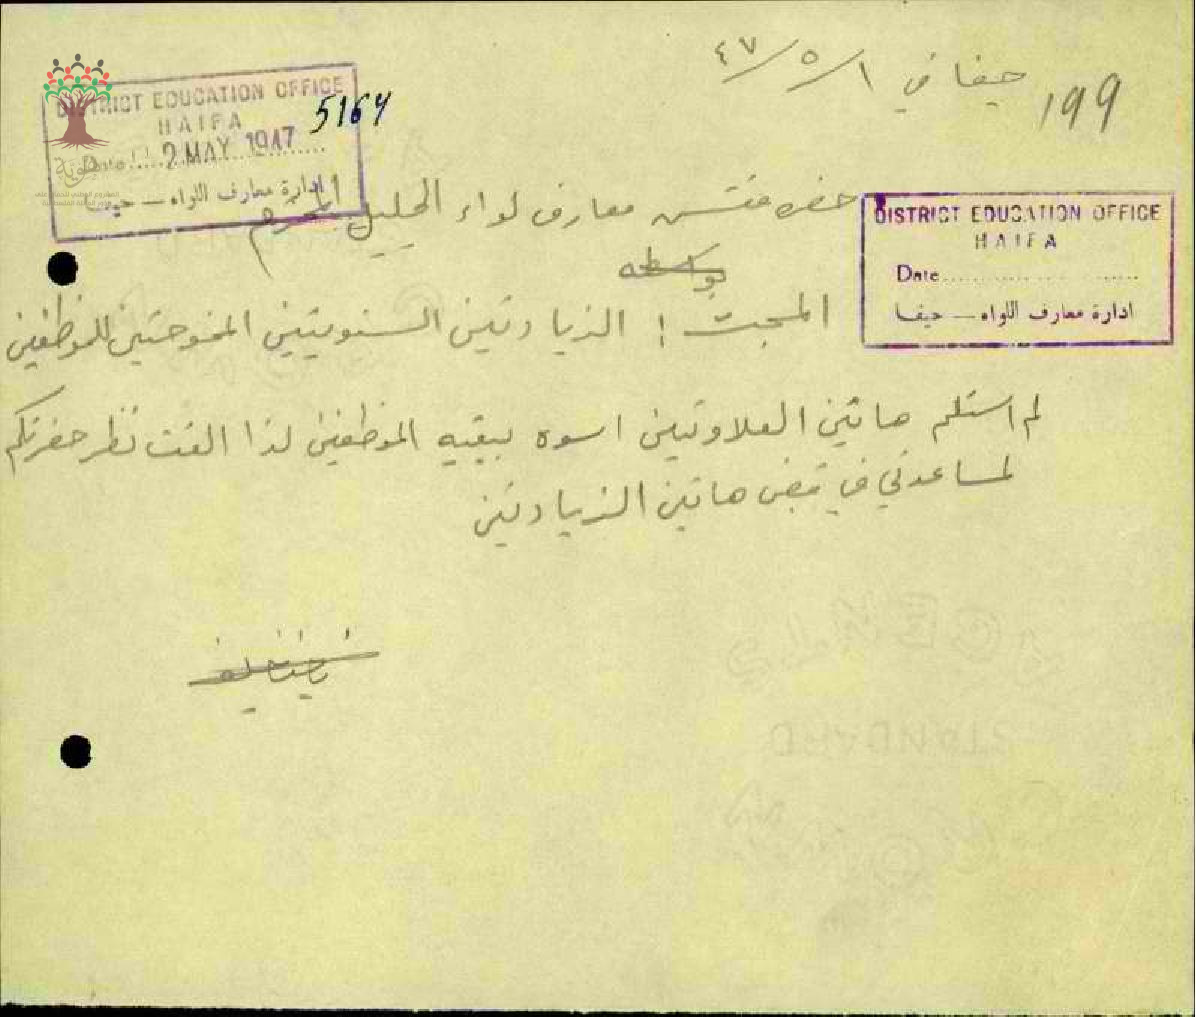 199
حيفا في ١/٥/٤٧
DISTRICT EDUCATION OFFICE
HAIFA
5164
Date 2 MAY 1947
ادارة معارف اللواء — حيفا
حضرة مفتش معارف لواء الجليل المحترم
DISTRICT EDUCATION OFFICE
HAIFA
Date
ادارة معارف اللواء — حيفا
بواسطة
المبحث : الزيادتين السنويتين الممنوحتين للموظفين
لم استلم هاتين العلاوتين اسوه ببقيه الموظفين لذا الفت نظر حضرتكم
لمساعدتي في قبض هاتين الزيادتين
STANDARD